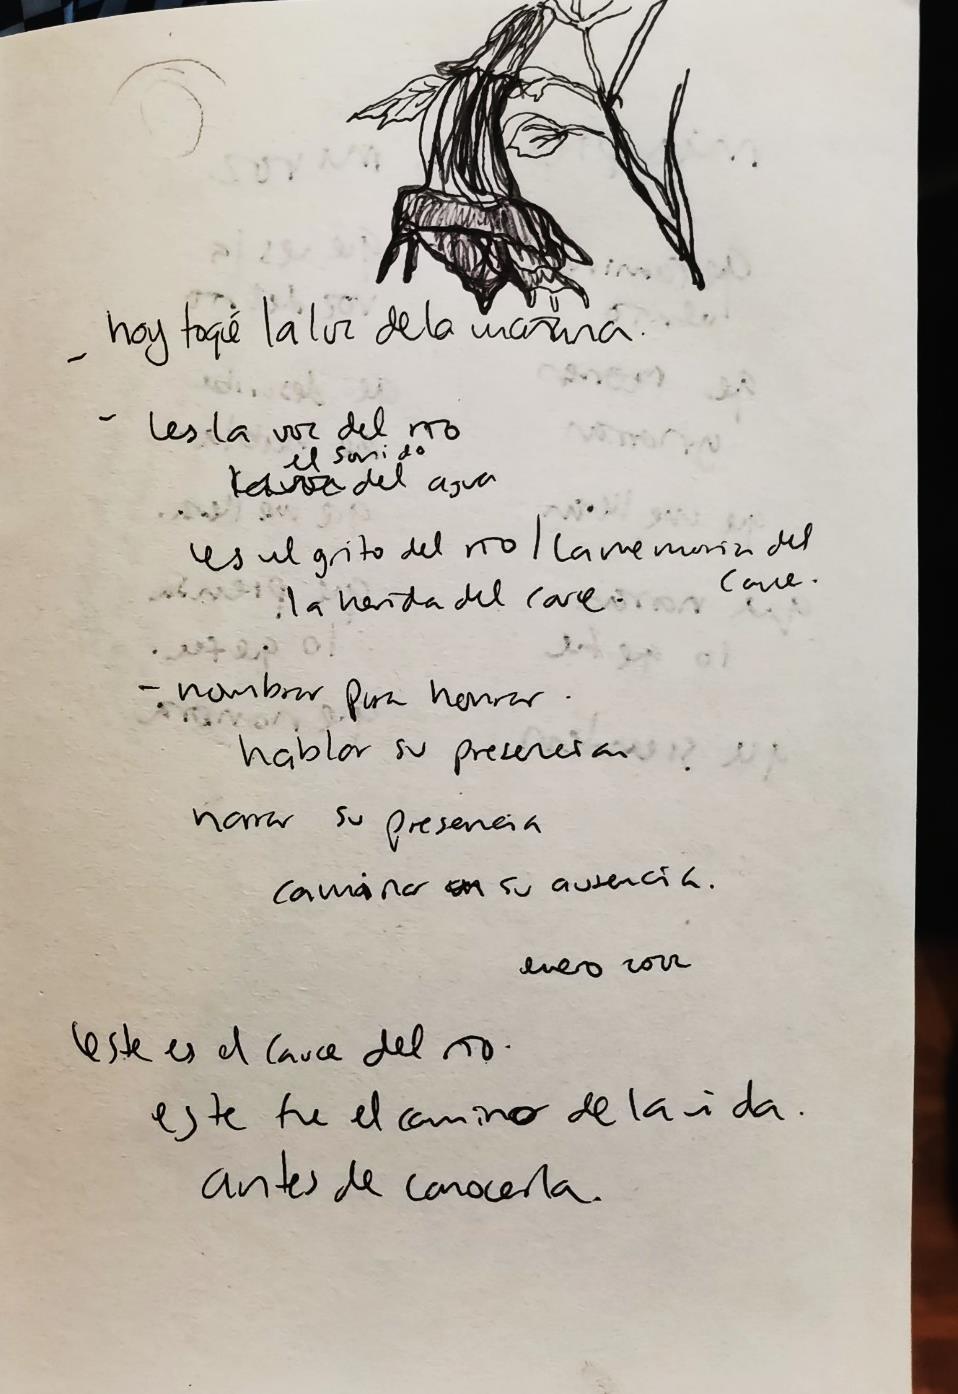 - hoy toqué la luz de la mañana.
- es la voz del río
el sonido
la voz del agua
es el grito del río / la memoria del
cauce.
la herida del cauce.
- nombrar para honrar.
hablar su presencia.
narrar su presencia
caminar en su ausencia.
enero 2022
este es el cauce del río.
este fue el camino de la vida.
antes de conocerla.